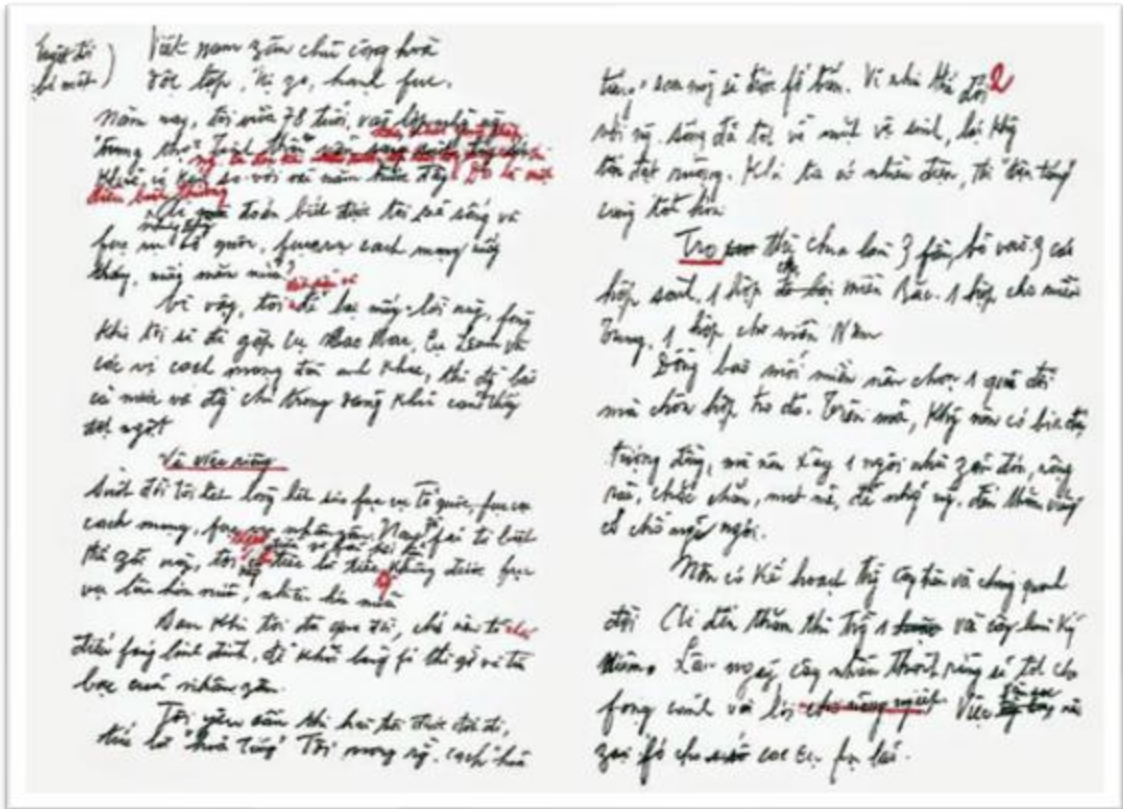 Tuyệt đối
bí mật )
Việt nam zân chủ cộng hoà
độc lập, tự zo, hạnh fúc.
Năm nay, tôi vừa 78 tuổi, vào lớp những ng̃
"trung thọ". Tinh thần vẫn sáng suốt
khoẻ so với vài năm trước đây. Đó là một
điều bình thường
Ai mà đoán biết được tôi sẽ sống và
fục vụ tổ quốc, cách mạng mấy
tháng, mấy năm nữa?
Vì vậy, tôi để lại mấy lời này, fòng
khi tôi sẽ đi gặp cụ Các Mác, cụ Lênin và
các vị cách mạng đàn anh khác, thì đồng bào
cả nước và đồng chí trong đảng khỏi cảm thấy
đột ngột
Về việc riêng
Suốt đời tôi hết lòng hết sức fục vụ Tổ quốc, fục vụ
cách mạng, fục vụ nhân zân. Nay fải từ biệt
thế giới này, tôi
tiếc là tiếc không được fục
vụ lâu hơn nữa, nhiều hơn nữa
Sau khi tôi đã qua đời, chớ nên tổ chức
điếu fúng linh đình, để khỏi lãng fí thì giờ và tiền
bạc của nhân zân.
Tôi yêu cầu thi hài tôi được đốt đi,
tức là "hoả táng". Tôi mong rằng cách "hoả
2
táng" sau này sẽ được fổ biến. Vì như thế đối
với ng̃ sống đã tốt về mặt vệ sinh, lại không
tốn đất ruộng. Khi ta có nhiều điện, thì "điện táng"
càng tốt hơn
Tro thì chia làm 3 fần, bỏ vào 3 cái
hộp sành, 1 hộp cho miền Bắc. 1 hộp cho miền
Trung, 1 hộp cho miền Nam
Đồng bào mỗi miền nên chọn 1 quả đồi
mà chôn hộp tro đó. Trên mả, không nên có bia đá
tượng đồng, mà nên xây 1 ngôi nhà zản đơn, rộng
rãi, chắc chắn, mát mẻ, để những ng̃ đến thăm viếng
có chỗ nghỉ ngơi.
Nên có kế hoạch trồng cây trên và chung quanh
đồi Ai đến thăm thì trồng 1 vài cây làm kỷ
niệm. Lâu ngày cây nhiều thành rừng sẽ tốt cho
fong cảnh và lợi cho nông nghiệp. Việc săn sóc nên
zao fó cho các cụ fụ lão.